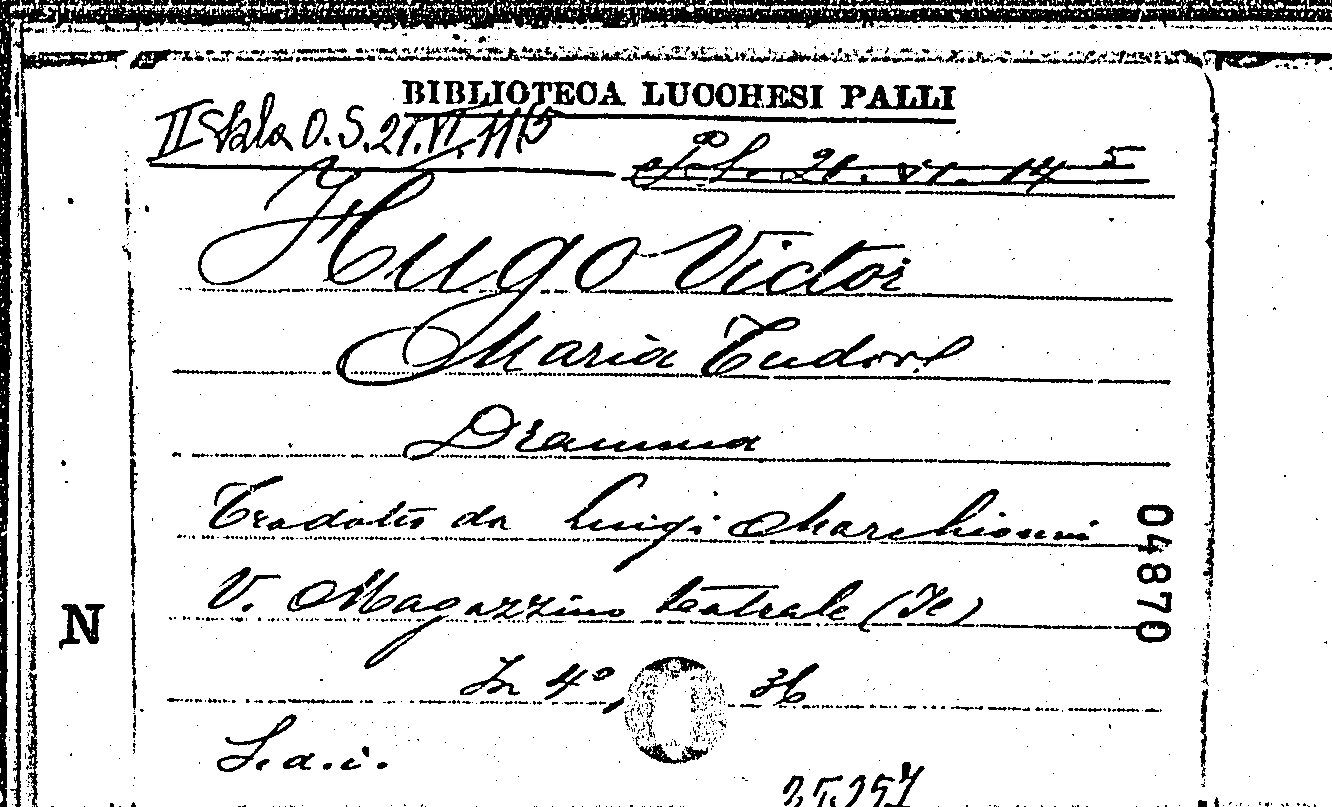 BIBLIOTECA LUCCHESI PALLI
II Sala O.S.21.VI.11(5
21. VI. 14 5
Hugo Victor
Maria Tudor
Dramma
Tradotto da Luigi Marchionni
V. Magazzino teatrale (Il)
In 4°, 36
S.a.i.
N
04870